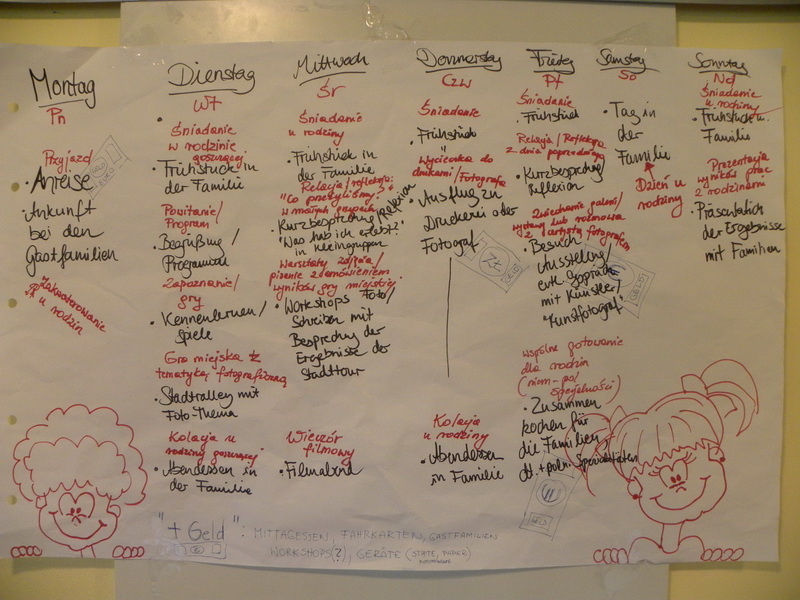 Montag
Pn
Przyjazd
• Anreise
• Ankunft
bei den
Gastfamilien
zakwaterowanie
u rodzin
Dienstag
Wt
Śniadanie
w rodzinie
goszczącej
• Frühstück in
der Familie
Powitanie/
Program
• Begrüßung/
Programm
Zapoznanie/
gry
• Kennenlernen/
Spiele
Gra miejska z
tematyką fotograficzną
• Stadtralley mit
Foto-Thema
Kolacja u
rodziny goszczącej
• Abendessen in
der Familie
Mittwoch
Śr
Śniadanie
u rodziny
• Frühstück in
der Familie
Relacja/refleksja:
"Co przeżyliśmy?"
w małych grupach
• Kurzbesprechung/Reflexion
"Was hab ich erlebt?"
in Kleingruppen
Warsztaty zdjęcia/
pisanie z omówieniem
wyników gry miejskiej
• Workshops Foto/
Schreiben mit
Besprechung der
Ergebnisse der
Stadttour
Wieczór
filmowy
• Filmabend
Donnerstag
Czw
Śniadanie
• Frühstück
Wycieczka do
drukarni/Fotografa
• Ausflug zu
Druckerei oder
Fotograf
Kolacja
u rodziny
• Abendessen
in Familie
Freitag
Pt
Śniadanie
• Frühstück
Relacja/Refleksja
z dnia poprzedniego
• Kurzbesprechung
Reflexion
Zwiedzanie galerii/
wystawy lub rozmowa
z artystą fotografem
• Besuch
Ausstellung/
evtl. Gespräch
mit Künstler/
"Kunstfotograf"
wspólne gotowanie
dla rodzin
(niem-pol
specjalności)
• Zusammen
kochen für
die Familien/
dt.+poln. Spezialitäten
Samstag
So
• Tag in
der
Familie
Dzień u
rodziny
Sonntag
Nd
Śniadanie
u rodziny
• Frühstück
Familie
Prezentacja
wyników prac
z rodzinami
• Präsentation
der Ergebnisse
mit Familien
"+ Geld": MITTAGESSEN, FAHRKARTEN, GASTFAMILIEN
WORKSHOPS(?), GERÄTE (STIFTE, PAPIER)